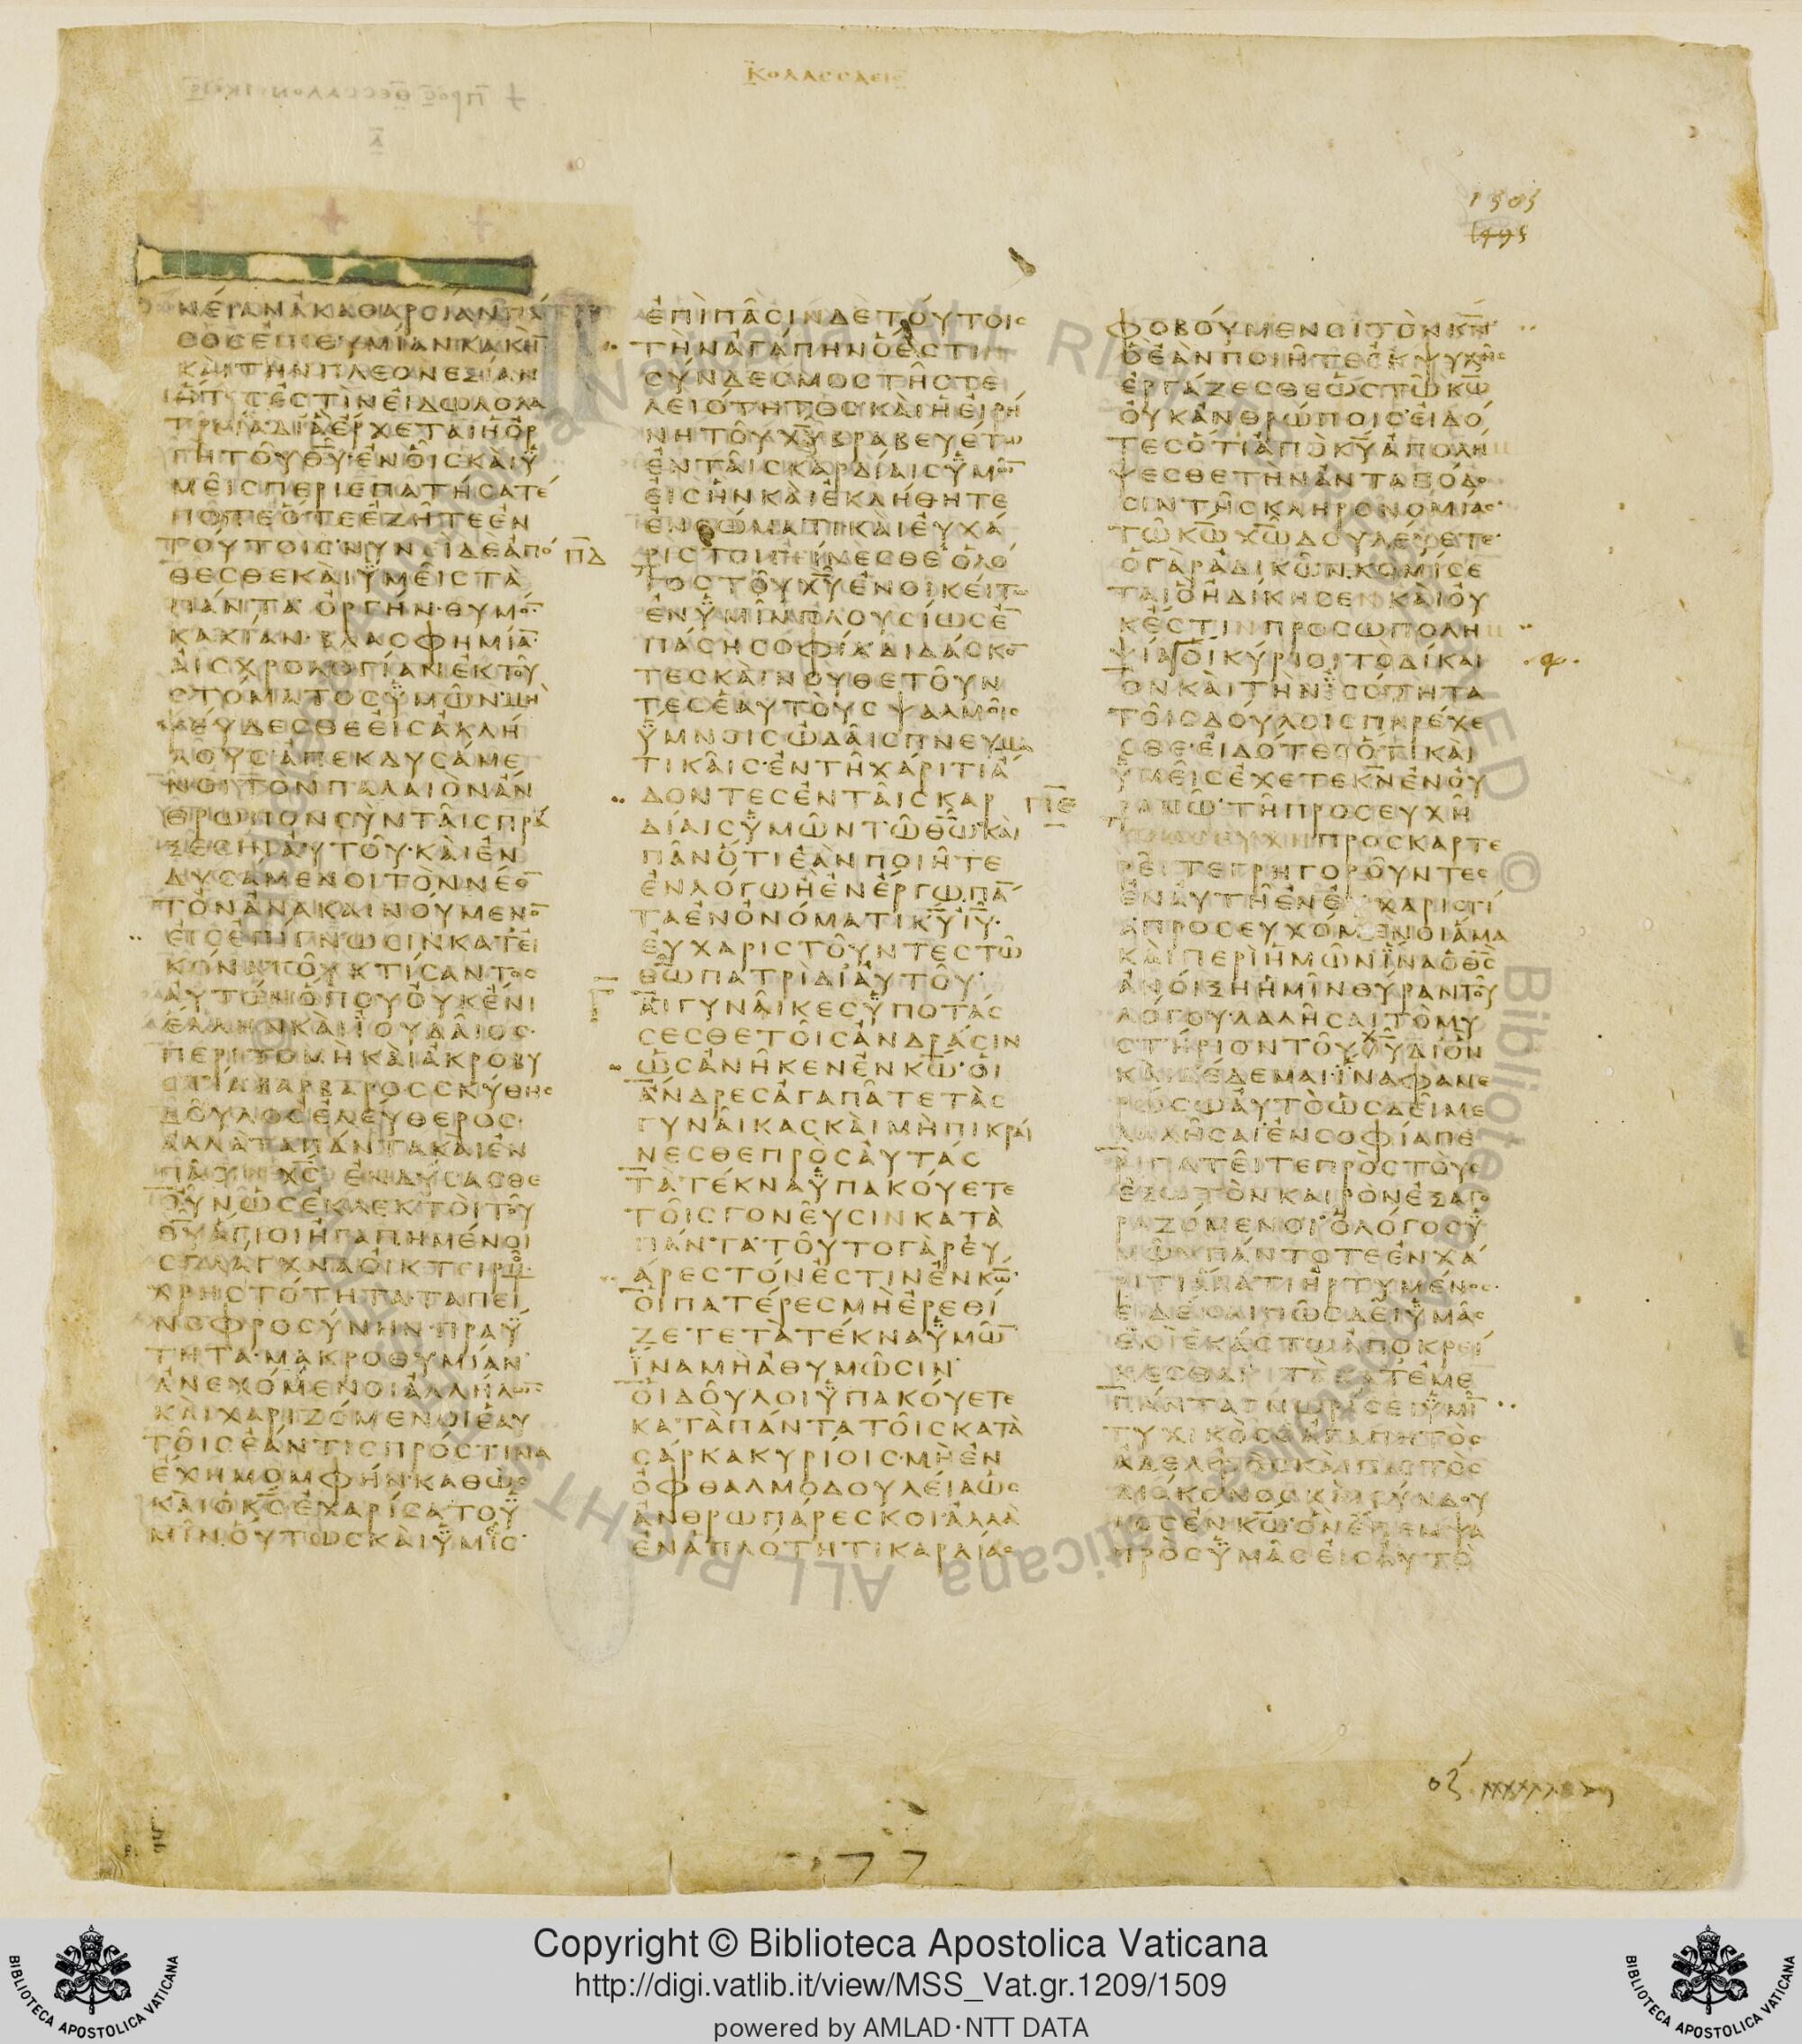 ΚΟΛΑΣΣΑΕΙΣ
1505
1495
ΝΕΓΑΝΑΚΑΘΑΡΣΙΑΝΠΑ
ΘΟΣΕΠΙΘΥΜΙΑΝΚΑΚΗ̅
ΚΑΙΤΗΝΠΛΕΟΝΕΞΙΑΝ
ΗΤΙΣΕΣΤΙΝΕΙΔΩΛΟΛΑ
ΤΡΙΑΔΙΑΕΡΧΕΤΑΙΗΟΡ
ΓΗΤΟΥΘ̅Υ̅ΕΝΟΙΣΚΑΙΥ
ΜΕΙΣΠΕΡΙΕΠΑΤΗΣΑΤΕ
ΠΟΤΕΟΤΕΕΖΗΤΕΕΝ
ΤΟΥΤΟΙΣΝΥΝΕΙΔΕΑΠΟ
ΘΕΣΘΕΚΑΙΥΜΕΙΣΤΑ
ΠΑΝΤΑΟΡΓΗΝΘΥΜΟ̅
ΚΑΚΙΑΝΒΛΑΣΦΗΜΙΑ̅
ΑΙΣΧΡΟΛΟΓΙΑΝΕΚΤΟΥ
ΣΤΟΜΑΤΟΣΥΜΩΝΜΗ
ΨΕΥΔΕΣΘΕΕΙΣΑΛΛΗ
ΛΟΥΣΑΠΕΚΔΥΣΑΜΕ
ΝΟΙΤΟΝΠΑΛΑΙΟΝΑΝ
ΘΡΩΠΟΝΣΥΝΤΑΙΣΠΡΑ
ΞΕΣΙΝΑΥΤΟΥΚΑΙΕΝ
ΔΥΣΑΜΕΝΟΙΤΟΝΝΕΟ̅
ΤΟΝΑΝΑΚΑΙΝΟΥΜΕΝΟ̅
ΕΙΣΕΠΙΓΝΩΣΙΝΚΑΤΕΙ
ΚΟΝΑΤΟΥΚΤΙΣΑΝΤΟΣ
ΑΥΤΟΝΟΠΟΥΟΥΚΕΝΙ
ΕΛΛΗΝΚΑΙΙΟΥΔΑΙΟΣ
ΠΕΡΙΤΟΜΗΚΑΙΑΚΡΟΒΥ
ΣΤΙΑΒΑΡΒΑΡΟΣΣΚΥΘΗΣ
ΔΟΥΛΟΣΕΛΕΥΘΕΡΟΣ
ΑΛΛΑΤΑΠΑΝΤΑΚΑΙΕΝ
ΠΑΣΙΝΧ̅Σ̅ΕΝΔΥΣΑΣΘΕ
ΟΥΝΩΣΕΚΛΕΚΤΟΙΤΟΥ
Θ̅Υ̅ΑΓΙΟΙΗΓΑΠΗΜΕΝΟΙ
ΣΠΛΑΓΧΝΑΟΙΚΤΙΡΜΟΥ
ΧΡΗΣΤΟΤΗΤΑΤΑΠΕΙ
ΝΟΦΡΟΣΥΝΗΝΠΡΑΥ
ΤΗΤΑΜΑΚΡΟΘΥΜΙΑΝ
ΑΝΕΧΟΜΕΝΟΙΑΛΛΗΛΩ̅
ΚΑΙΧΑΡΙΖΟΜΕΝΟΙΕΑΥ
ΤΟΙΣΕΑΝΤΙΣΠΡΟΣΤΙΝΑ
ΕΧΗΜΟΜΦΗΝΚΑΘΩΣ
ΚΑΙΟΚ̅Σ̅ΕΧΑΡΙΣΑΤΟΥ
ΜΙΝΟΥΤΩΣΚΑΙΥΜΙΣ
ΕΠΙΠΑΣΙΝΔΕΤΟΥΤΟΙΣ
ΤΗΝΑΓΑΠΗΝΟΕΣΤΙΝ
ΣΥΝΔΕΣΜΟΣΤΗΣΤΕ
ΛΕΙΟΤΗΤΟΣΚΑΙΗΕΙΡΗ
ΝΗΤΟΥΧ̅Υ̅ΒΡΑΒΕΥΕΤΩ
ΕΝΤΑΙΣΚΑΡΔΙΑΙΣΥΜΩ̅
ΕΙΣΗΝΚΑΙΕΚΛΗΘΗΤΕ
ΕΝΣΩΜΑΤΙΚΑΙΕΥΧΑ
Π̅Δ̅
ΡΙΣΤΟΙΓΕΙΝΕΣΘΕΟΛΟ
ΓΟΣΤΟΥΧ̅Υ̅ΕΝΟΙΚΕΙΤΩ
ΕΝΥΜΙΝΠΛΟΥΣΙΩΣΕ̅
ΠΑΣΗΣΟΦΙΑΔΙΔΑΣΚΟ̅
ΤΕΣΚΑΙΝΟΥΘΕΤΟΥΝ
ΤΕΣΕΑΥΤΟΥΣΨΑΛΜΟΙΣ
ΥΜΝΟΙΣΩΔΑΙΣΠΝΕΥΜΑ
ΤΙΚΑΙΣΕΝΤΗΧΑΡΙΤΙΑ
ΔΟΝΤΕΣΕΝΤΑΙΣΚΑΡ
ΔΙΑΙΣΥΜΩΝΤΩΘ̅Ω̅ΚΑΙ
ΠΑΝΟΤΙΕΑΝΠΟΙΗΤΕ
ΕΝΛΟΓΩΗΕΝΕΡΓΩΠΑ̅
ΤΑΕΝΟΝΟΜΑΤΙΚ̅Υ̅Ι̅Υ̅
ΕΥΧΑΡΙΣΤΟΥΝΤΕΣΤΩ
Θ̅Ω̅ΠΑΤΡΙΔΙΑΥΤΟΥ
ΑΙΓΥΝΑΙΚΕΣΥΠΟΤΑΣ
ΣΕΣΘΕΤΟΙΣΑΝΔΡΑΣΙΝ
ΩΣΑΝΗΚΕΝΕΝΚ̅Ω̅ΟΙ
ΑΝΔΡΕΣΑΓΑΠΑΤΕΤΑΣ
ΓΥΝΑΙΚΑΣΚΑΙΜΗΠΙΚΡΑΙ
ΝΕΣΘΕΠΡΟΣΑΥΤΑΣ
ΤΑΤΕΚΝΑΥΠΑΚΟΥΕΤΕ
ΤΟΙΣΓΟΝΕΥΣΙΝΚΑΤΑ
ΠΑΝΤΑΤΟΥΤΟΓΑΡΕΥ
ΑΡΕΣΤΟΝΕΣΤΙΝΕΝΚ̅Ω̅
ΟΙΠΑΤΕΡΕΣΜΗΕΡΕΘΙ
ΖΕΤΕΤΑΤΕΚΝΑΥΜΩ̅
ΙΝΑΜΗΑΘΥΜΩΣΙΝ
ΟΙΔΟΥΛΟΙΥΠΑΚΟΥΕΤΕ
ΚΑΤΑΠΑΝΤΑΤΟΙΣΚΑΤΑ
ΣΑΡΚΑΚΥΡΙΟΙΣΜΗΕΝ
ΟΦΘΑΛΜΟΔΟΥΛΕΙΑΩΣ
ΑΝΘΡΩΠΑΡΕΣΚΟΙΑΛΛΑ
ΕΝΑΠΛΟΤΗΤΙΚΑΡΔΙΑΣ
ΦΟΒΟΥΜΕΝΟΙΤΟΝΚ̅Ν̅
ΟΕΑΝΠΟΙΗΤΕΕΚΨΥΧΗΣ
ΕΡΓΑΖΕΣΘΕΩΣΤΩΚ̅Ω̅
ΟΥΚΑΝΘΡΩΠΟΙΣΕΙΔΟ
ΤΕΣΟΤΙΑΠΟΚ̅Υ̅ΑΠΟΛΗ
ΨΕΣΘΕΤΗΝΑΝΤΑΠΟΔΟ
ΣΙΝΤΗΣΚΛΗΡΟΝΟΜΙΑΣ
ΤΩΚ̅Ω̅Χ̅Ω̅ΔΟΥΛΕΥΕΤΕ
ΟΓΑΡΑΔΙΚΩΝΚΟΜΙΣΕ
ΤΑΙΟΗΔΙΚΗΣΕΝΚΑΙΟΥ
ΚΕΣΤΙΝΠΡΟΣΩΠΟΛΗ
ΨΙΑΟΙΚΥΡΙΟΙΤΟΔΙΚΑΙ
ΟΝΚΑΙΤΗΝΙΣΟΤΗΤΑ
ΤΟΙΣΔΟΥΛΟΙΣΠΑΡΕΧΕ
ΣΘΕΕΙΔΟΤΕΣΟΤΙΚΑΙ
ΥΜΕΙΣΕΧΕΤΕΚ̅Ν̅ΕΝΟΥ
Π̅Ε̅
ΡΑΝΩΤΗΠΡΟΣΕΥΧΗ
ΠΡΟΣΕΥΧΗΠΡΟΣΚΑΡΤΕ
ΡΕΙΤΕΓΡΗΓΟΡΟΥΝΤΕΣ
ΕΝΑΥΤΗΕΝΕΥΧΑΡΙΣΤΙ
ΑΠΡΟΣΕΥΧΟΜΕΝΟΙΑΜΑ
ΚΑΙΠΕΡΙΗΜΩΝΙΝΑΟΘ̅Σ̅
ΑΝΟΙΞΗΗΜΙΝΘΥΡΑΝΤΟΥ
ΛΟΓΟΥΛΑΛΗΣΑΙΤΟΜΥ
ΣΤΗΡΙΟΝΤΟΥΘ̅Υ̅ΔΙΟΝ
ΚΑΙΔΕΔΕΜΑΙΙΝΑΦΑΝΕ
ΡΩΣΩΑΥΤΟΩΣΔΕΙΜΕ
ΛΑΛΗΣΑΙΕΝΣΟΦΙΑΠΕ
ΡΙΠΑΤΕΙΤΕΠΡΟΣΤΟΥΣ
ΕΞΩΤΟΝΚΑΙΡΟΝΕΞΑΓΟ
ΡΑΖΟΜΕΝΟΙΟΛΟΓΟΣΥ
ΜΩΝΠΑΝΤΟΤΕΕΝΧΑ
ΡΙΤΙΑΛΑΤΙΗΡΤΥΜΕΝΟΣ
ΕΙΔΕΝΑΙΠΩΣΔΕΙΥΜΑΣ
ΕΝΙΕΚΑΣΤΩΑΠΟΚΡΕΙ
ΝΕΣΘΑΙΤΑΚΑΤΕΜΕ
ΠΑΝΤΑΓΝΩΡΙΣΕΙΥΜΙ̅
ΤΥΧΙΚΟΣΟΑΓΑΠΗΤΟΣ
ΑΔΕΛΦΟΣΚΑΙΠΙΣΤΟΣ
ΔΙΑΚΟΝΟΣΚΑΙΣΥΝΔΟΥ
ΛΟΣΕΝΚ̅Ω̅ΟΝΕΠΕΜΨΑ
ΠΡΟΣΥΜΑΣΕΙΣΑΥΤΟ
77
Copyright © Biblioteca Apostolica Vaticana
http://digi.vatlib.it/view/MSS_Vat.gr.1209/1509
powered by AMLAD·NTT DATA
BIBLIOTECA APOSTOLICA VATICANA
BIBLIOTECA APOSTOLICA VATICANA